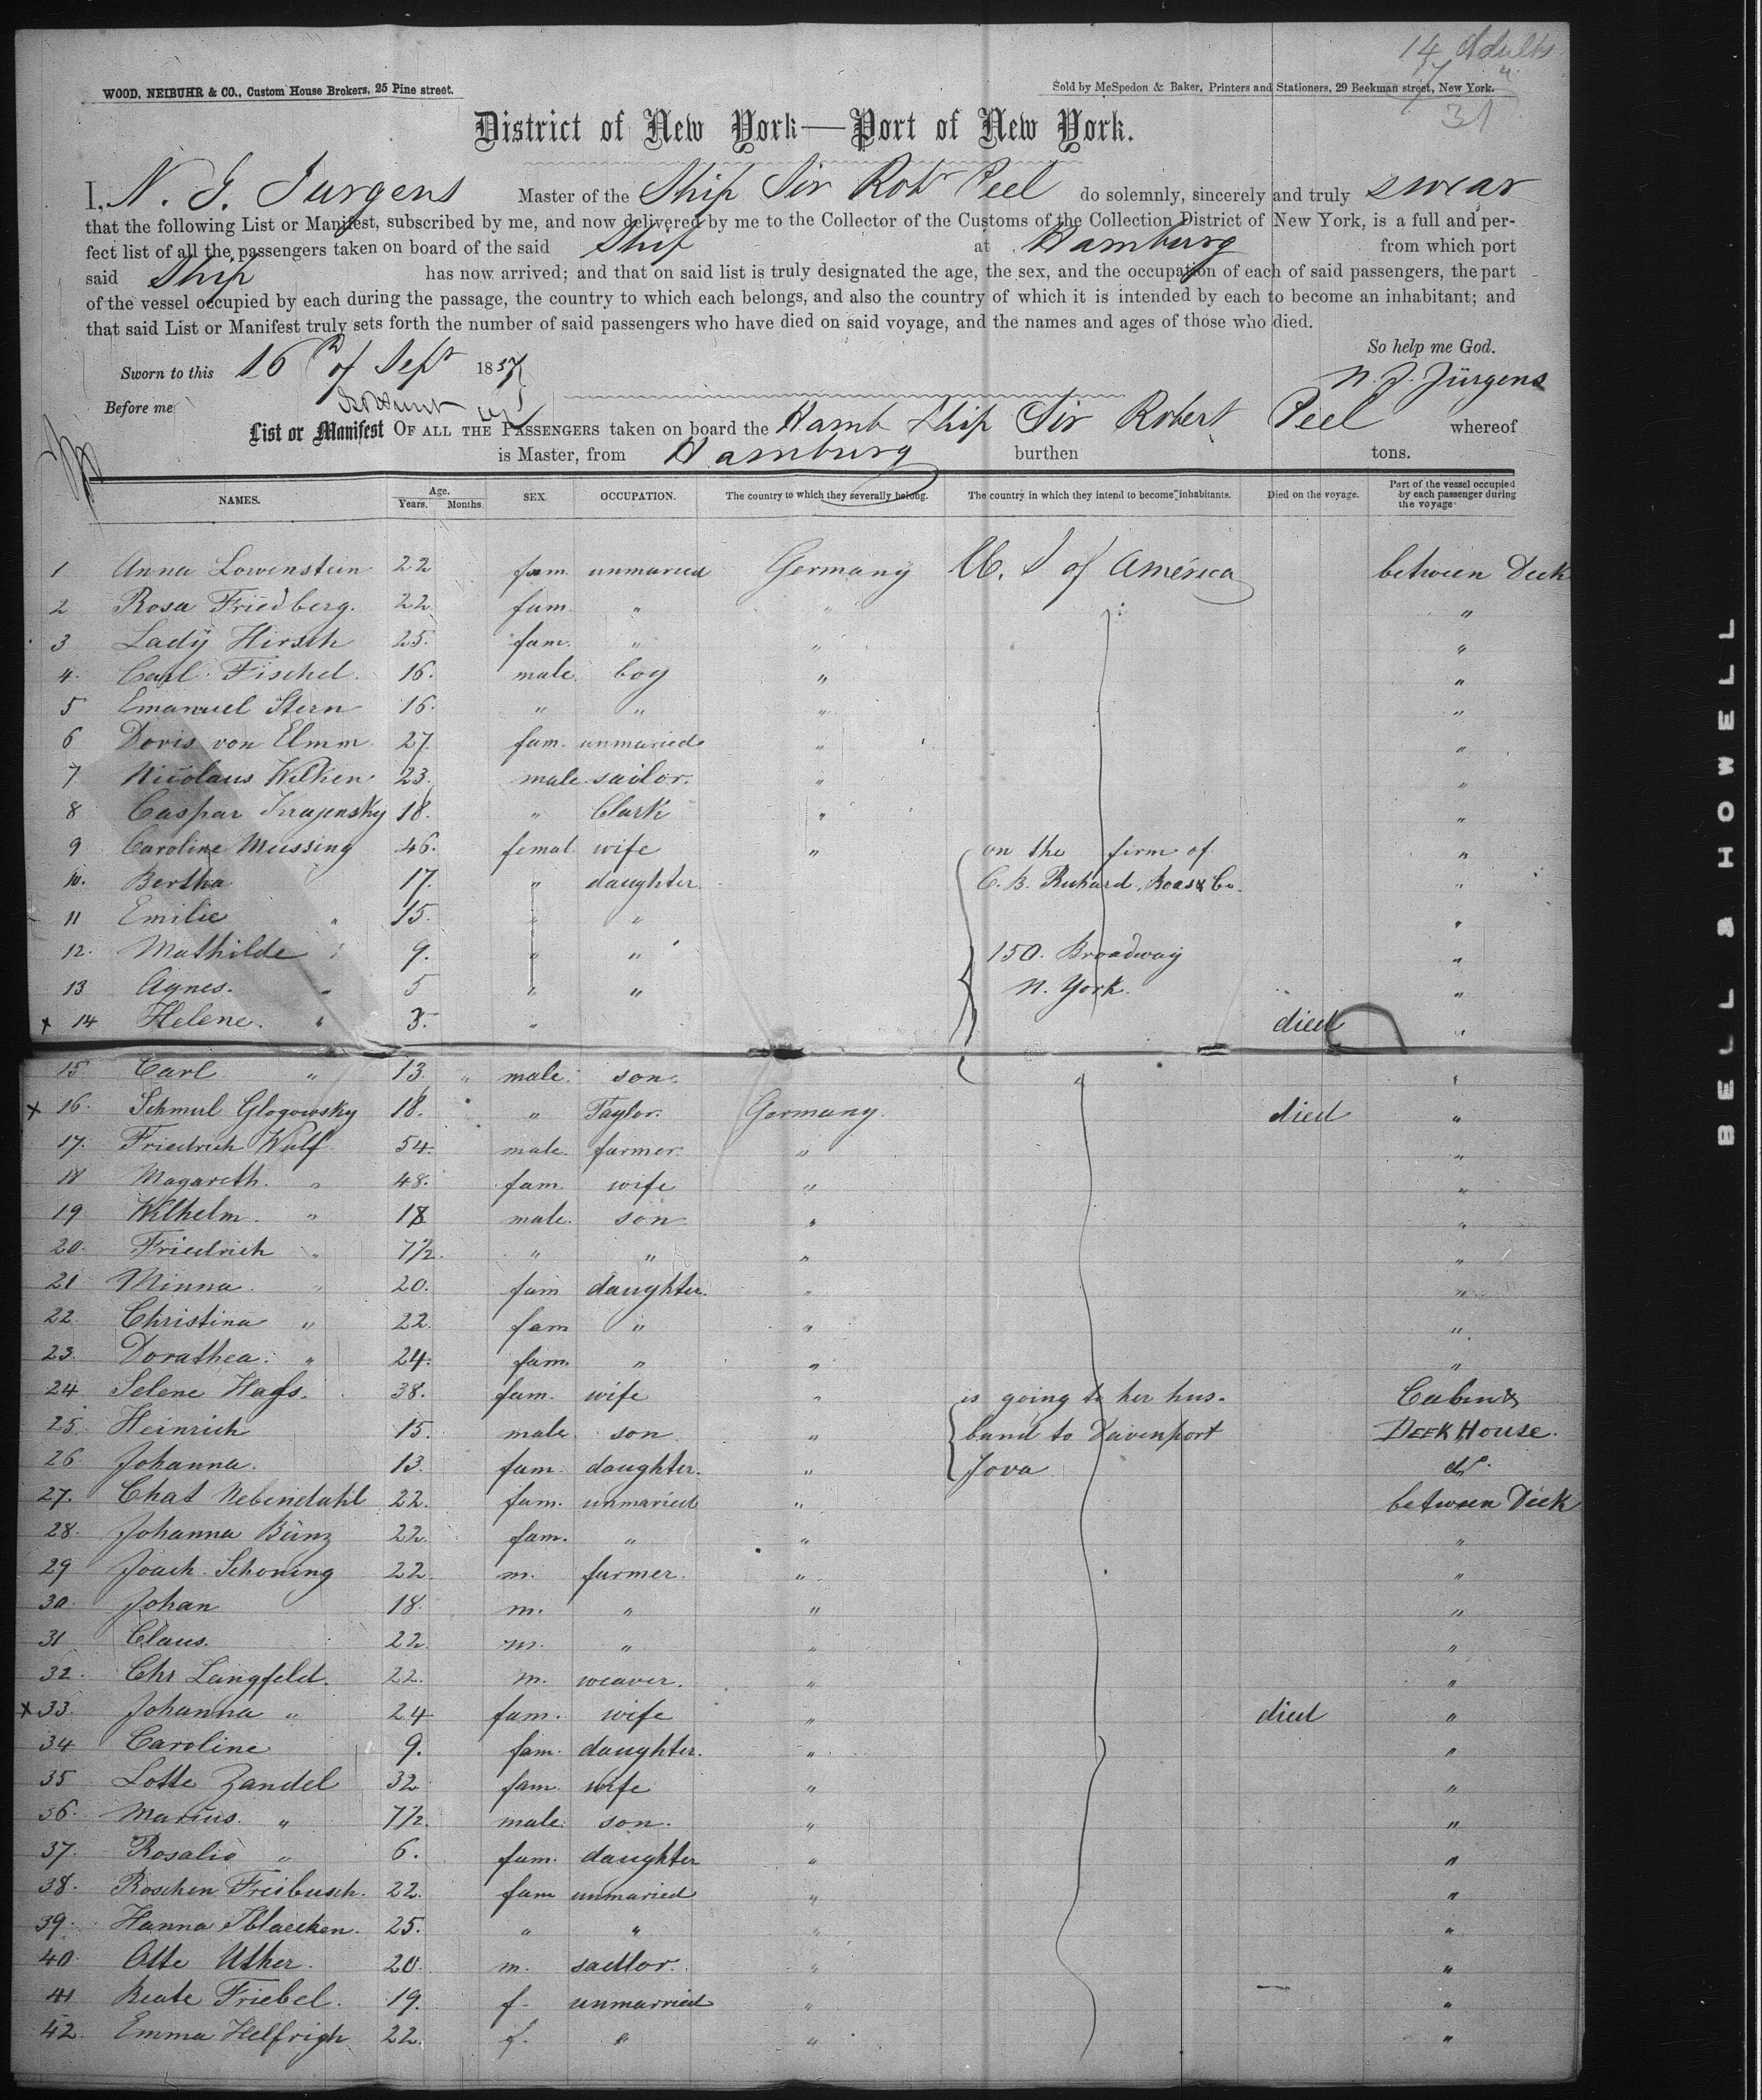 14 Adults
WOOD, NEIBUHR & CO., Custom House Brokers, 25 Pine street.
Sold by McSpedon & Baker, Printers and Stationers, 29 Beekman street, New York.
31
District of New York—Port of New York.
I, N. J. Jurgens Master of the Ship Sir Robt Peel do solemnly, sincerely and truly swear
that the following List or Manifest, subscribed by me, and now delivered by me to the Collector of the Customs of the Collection District of New York, is a full and per-
fect list of all the passengers taken on board of the said Ship at Hamburg from which port
said Ship has now arrived; and that on said list is truly designated the age, the sex, and the occupation of each of said passengers, the part
of the vessel occupied by each during the passage, the country to which each belongs, and also the country of which it is intended by each to become an inhabitant; and
that said List or Manifest truly sets forth the number of said passengers who have died on said voyage, and the names and ages of those who died.
So help me God.
Sworn to this 16th of Sept 1857
N. J. Jürgens
Before me
List or Manifest OF ALL THE PASSENGERS taken on board the Hamb Ship Sir Robert Peel whereof
is Master, from Hamburg burthen tons.
NAMES. Age. Years. Months SEX. OCCUPATION. The country to which they severally belong. The country in which they intend to become inhabitants. Died on the voyage. Part of the vessel occupied by each passenger during the voyage
1 Anna Lowenstein 22 fam unmaried Germany U. S of America between Deck
2 Rosa Friedberg. 22 fam. " " "
3 Lady Hirsch 25. fam. " " "
4. Carl Fischel. 16. male. boy " "
5 Emanuel Stern 16. " " " "
6 Doris von Elmm 27 fam. unmaried " "
7 Nicolaus Wilken 23. male sailor. " "
8 Caspar Krajensky 18. " Clark " "
9 Caroline Meissing 46. femal wife " on the firm of "
10. Bertha 17. " daughter. C. B. Richard, Boas & Co. "
11 Emilie " 15. " " "
12. Mathilde " 9. " " 150. Broadway "
13 Agnes. " 5 " " N. York. "
x 14 Helene. " 3. " died "
15 Carl " 13. " male. son. " "
x 16. Schmul Glogowsky 18. " Taylor. Germany. died "
17. Friedrich Wulf 54. male. farmer. " "
18 Magareth. " 48. fam wife " "
19 Wilhelm. " 18 male. son " "
20. Friedrich " 7½. " " " "
21 Minna " 20. fam daughter. " "
22. Christina " 22. fam " " "
23. Dorathea. " 24. fam. " " "
24 Selene Hass. 38. fam. wife " is going to her hus- Cabin &
25. Heinrich 15. male son " band to Davenport DECK HOUSE.
26. Johanna. 13. fam. daughter. " Jova do.
27. Chat Nebendahl 22. fam. unmaried " between Deck
28. Johanna Bünz 22. fam. " " "
29 Joach. Schoning 22. m. farmer. " "
30. Johan 18. m. " " "
31 Claus. 22. m. " " "
32. Chr Langfeld. 22. m. weaver. " "
x 33. Johanna " 24 fam. wife " died "
34 Caroline 9. fam. daughter. " "
35 Lotte Zandel 32 fam. wife " "
36. Marius. " 7½. male. son. " "
37. Rosalie " 6. fam. daughter " "
38. Roschen Freibusch. 22. fam unmaried " "
39. Hanna 25. " " " "
40. Otto Uther. 20. m. sadlor. " "
41 Beate Friebel. 19. f. unmarried " "
42. Emma Helfrigh 22. f. " " "
BELL & HOWELL